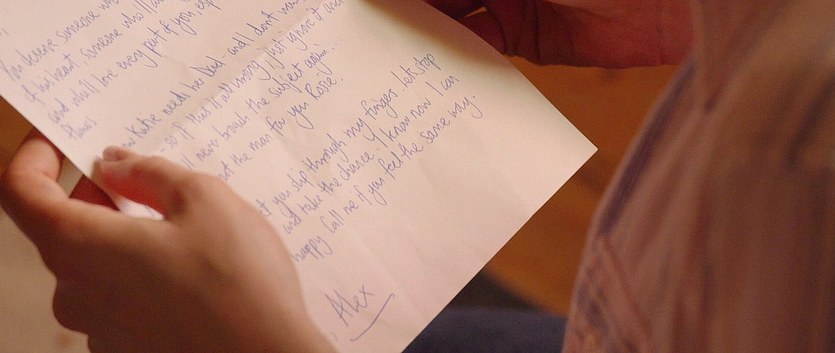 You deserve someone who
of his heart, someone who'll
and who'll love every part of you, esp
flaws
Katie needs her Dad and I don't
so if this is all wrong, just ignore it and
I'll never broach the subject again.
not the man for you Rosie.
let you slip through my fingers. Let's stop
and take the chance. I know now I can
happy. Call me if you feel the same way.
Alex